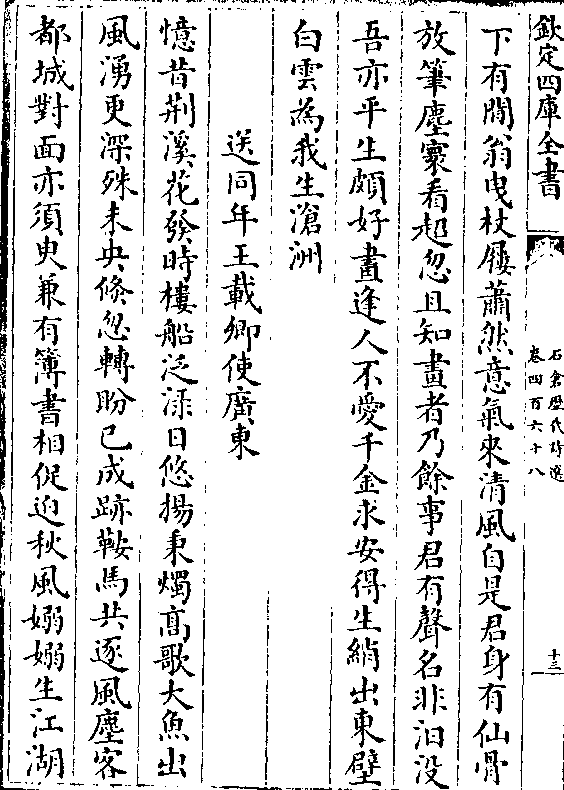 欽定四庫全書
石倉歷代詩選
卷四百六十八
十三
下有閒翁曳杖屨蕭然意氣來清風自是君身有仙骨
放筆塵寰看超忽且知畫者乃餘事君有聲名非汨没
吾亦平生頗好畫逢人不愛千金求安得生綃出東壁
白雲為我生滄洲
送同年王載卿使廣東
憶昔荆溪花發時樓船泛渌日悠揚秉燭高歌大魚出
風湧更深殊未央倐忽轉盼已成跡鞍馬共逐風塵客
都城對面亦須臾兼有簿書相促迫秋風嫋嫋生江湖